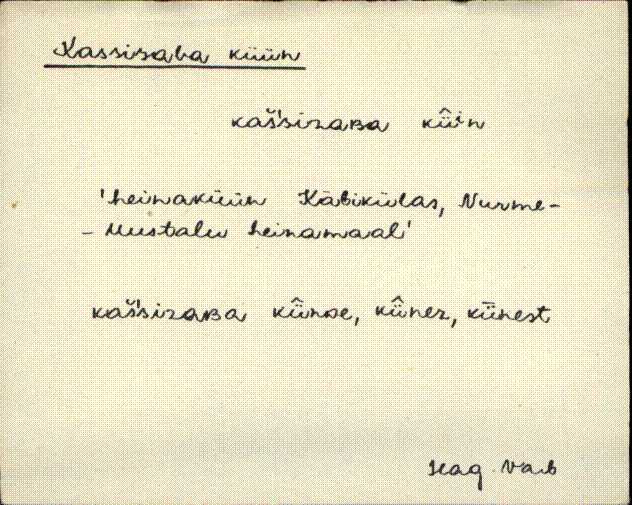 Kassisaba küün
kaš́sisaʙa kü̂in
'heinaküün Käbikülas, Nurme-
- Mustalu heinamaal'
kaš́sisaʙa kü̂nᴅe, kü̂nes, kǖnest
Hag. Vab